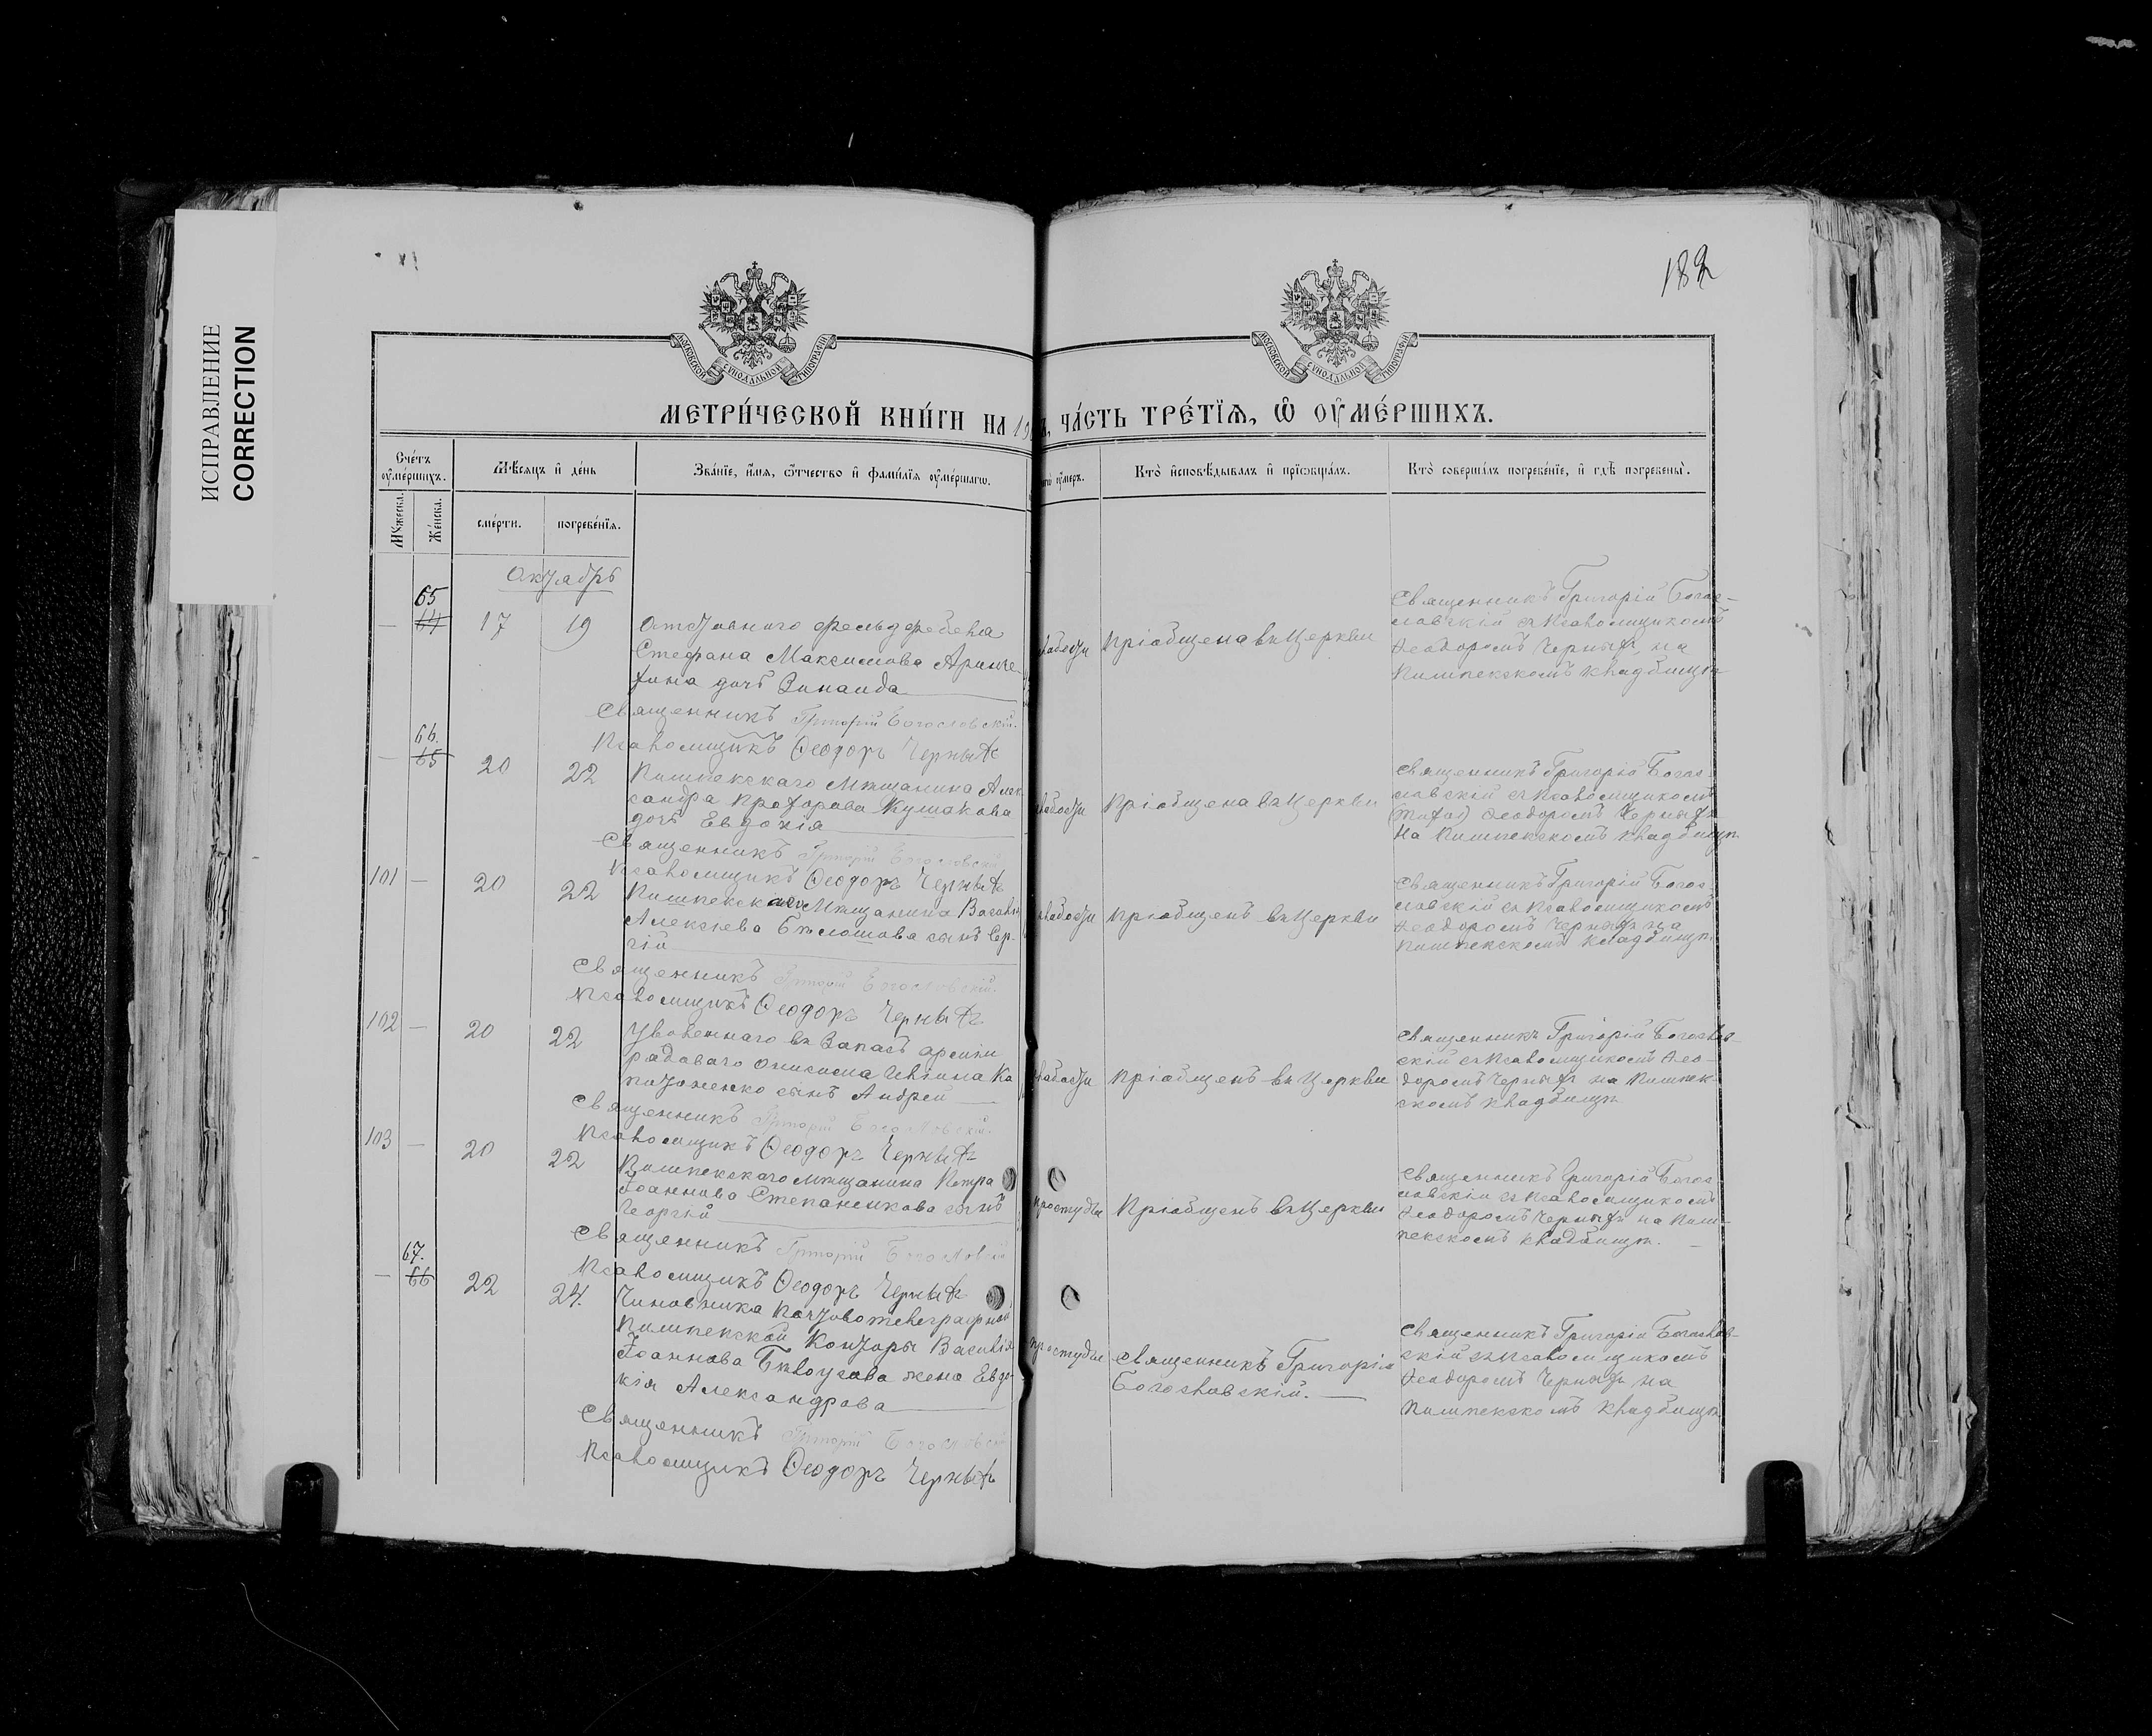 ИСПРАВЛЕНИЕ
CORRECTION
182
МОСКОВСКОЙ СѴНОДАЛЬНОЙ ТИПОГРАФІИ
МОСКОВСКОЙ СѴНОДАЛЬНОЙ ТИПОГРАФІИ
МЕТРИ́ЧЕСКОЙ КНИ́ГИ НА 19
ЧА́СТЬ ТРЕ́ТЇѦ, Ѡ҆ ОУ҆МЕ́РШИХЪ.
Сче́тъ оу҆ме́ршихъ.
Мѣ́сяцъ и҆ де́нь
Зва́нїе, и҆́мя, ѻ҆́тчество и҆ фами́лїя оу҆ме́ршагѡ.
оу҆́меръ.
Кто̀ и҆сповѣ́дывалъ и҆ прїѡбща́лъ.
Кто̀ соверша́лъ погребе́нїе, и҆ гдѣ̀ погребены̀.
Мꙋ́жеска.
Же́нска.
сме́рти.
погребе́нїя.
Октябрь
65
— 64 17 19 Отставного фельдфебеля
Стефана Максимова
дочь Зинаида
Священникъ Григорій Богословскій.
Псаломщикъ Ѳеодоръ Черныхъ
Пріобщена въ Церкви
Священникъ Григорій Богос-
ловскій съ Псаломщикомъ
Ѳеодоромъ Черныхъ, на
Пишпекскомъ кладбищѣ
66.
— 65 20 22 Пишпекскаго Мѣщанина Алек-
сандра Прохорова Кушакова
дочь Евдокія
Священникъ Григорій Богословскій
Псаломщикъ Ѳеодоръ Черныхъ
Пріобщена въ Церкви
Священникъ Григорій Богос-
ловскій съ Псаломщикомъ
Ѳеодоромъ Черныхъ
на Пишпекскомъ кладбищѣ
101 — 20 22 Пишпекскаго Мѣщанина
Алексѣева сынъ Сер-
гій
Священникъ Григорій Богословскій.
Псаломщикъ Ѳеодоръ Черныхъ
Пріобщенъ въ Церкви
Священникъ Григорій Богос-
ловскій съ Псаломщикомъ
Ѳеодоромъ Черныхъ на
Пишпекскомъ кладбищѣ
102 — 20 22 Уволеннаго въ Запасъ арміи
рядоваго Онисима
сынъ Андрей
Священникъ Григорій Богословскій.
Псаломщикъ Ѳеодоръ Черныхъ
Пріобщенъ въ Церкви
Священникъ Григорій Богослов-
скій съ Псаломщикомъ Ѳео-
доромъ Черныхъ на Пишпек-
скомъ кладбищѣ
103 — 20 22 Пишпекскаго мѣщанина Петра
Іоаннова Степаненкова сынъ
Георгій
Священникъ Григорій
Псаломщикъ Ѳеодоръ Черныхъ
простуды Пріобщенъ въ Церкви
Священникъ Григорій Богос-
ловскій съ Псаломщикомъ
Ѳеодоромъ Черныхъ на Пиш-
пекскомъ кладбищѣ.
67.
— 66 22 24. Чиновника Почтово телеграфной
Пишпекской Конторы Василія
Іоаннова Бѣлоусова жена Евдо-
кія Александрова
Священникъ Григорій Богословскій
Псаломщикъ Ѳеодоръ Черныхъ
простуды Священникъ Григорій
Богословскій.
Священникъ Григорій Богослов-
скій съ Псаломщикомъ
Ѳеодоромъ Черныхъ на
Пишпекскомъ кладбищѣ